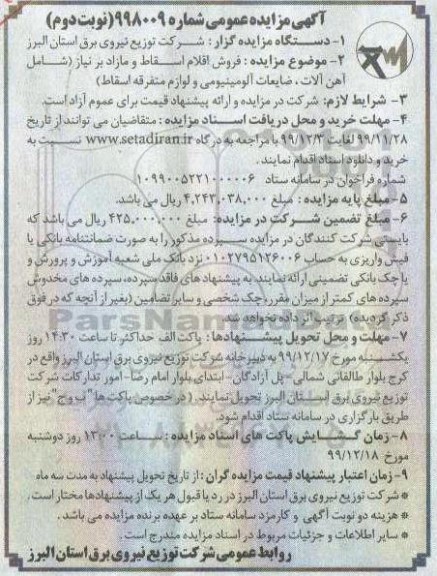 آگهی مزایده عمومی شماره ۹۹۸۰۰۹ (نوبت دوم)
۱- دستگاه مزایده گزار: شرکت توزیع نیروی برق استان البرز
۲- موضوع مزایده: فروش اقلام اسقاط و مازاد بر نیاز (شامل
آهن آلات، ضایعات آلومینیومی و لوازم متفرقه اسقاط)
۳- شرایط لازم: شرکت در مزایده و ارائه پیشنهاد قیمت برای عموم آزاد است.
۴- مهلت خرید و محل دریافت اسناد مزایده: متقاضیان می توانند از تاریخ
۹۹/۱۱/۲۸ لغایت ۹۹/۱۲/۳ با مراجعه به درگاه www.setadiran.ir نسبت به
خرید و دانلود اسناد اقدام نمایند.
شماره فراخوان در سامانه ستاد ۱۰۹۹۰۰۵۲۲۱۰۰۰۰۰۶
۵- مبلغ پایه مزایده: مبلغ ۴,۲۴۲,۰۳۸,۰۰۰ ریال می باشد.
۶- مبلغ تضمین شرکت در مزایده: مبلغ ۴۲۵,۰۰۰,۰۰۰ ریال می باشد که
بایستی شرکت کنندگان در مزایده سپرده مذکور را به صورت ضمانتنامه بانکی یا
فیش واریزی به حساب ۰۱۰۲۷۹۵۱۲۶۰۰۶ نزد بانک ملی شعبه آموزش و پرورش و
یا چک بانکی تضمینی ارائه نمایند. به پیشنهاد های فاقد سپرده، سپرده های مخدوش
سپرده های کمتر از میزان مقرر، چک شخصی و سایر تضامین (بغیر از آنچه که در فوق
ذکر گردیده) ترتیب اثر داده نخواهد شد.
۷- مهلت و محل تحویل پیشنهادها: پاکت الف حداکثر تا ساعت ۱۴:۳۰ روز
یکشنبه مورخ ۹۹/۱۲/۱۷ به دبیرخانه شرکت توزیع نیروی برق استان البرز واقع در
کرج بلوار طالقانی شمالی- پل آزادگان- ابتدای بلوار امام رضا- امور تدارکات شرکت
توزیع نیروی برق استان البرز تحویل نمایند. (در خصوص پاکت ها "ب و ج" نیز از
طریق بارگزاری در سامانه ستاد اقدام شود
۸- زمان گشایش پاکت های اسناد مزایده: ساعت ۱۳:۰۰ روز دوشنبه
مورخ ۹۹/۱۲/۱۸
۹- زمان اعتبار پیشنهاد قیمت مزایده گران: از تاریخ تحویل پیشنهاد به مدت سه ماه
* شرکت توزیع نیروی برق استان البرز در رد یا قبول هر یک از پیشنهادها مختار است.
* هزینه دو نوبت آگهی و کارمزد سامانه ستاد بر عهده برنده مزایده می باشد.
* سایر اطلاعات و جزئیات مربوط در اسناد مزایده مندرج است.
روابط عمومی شرکت توزیع نیروی برق استان البرز